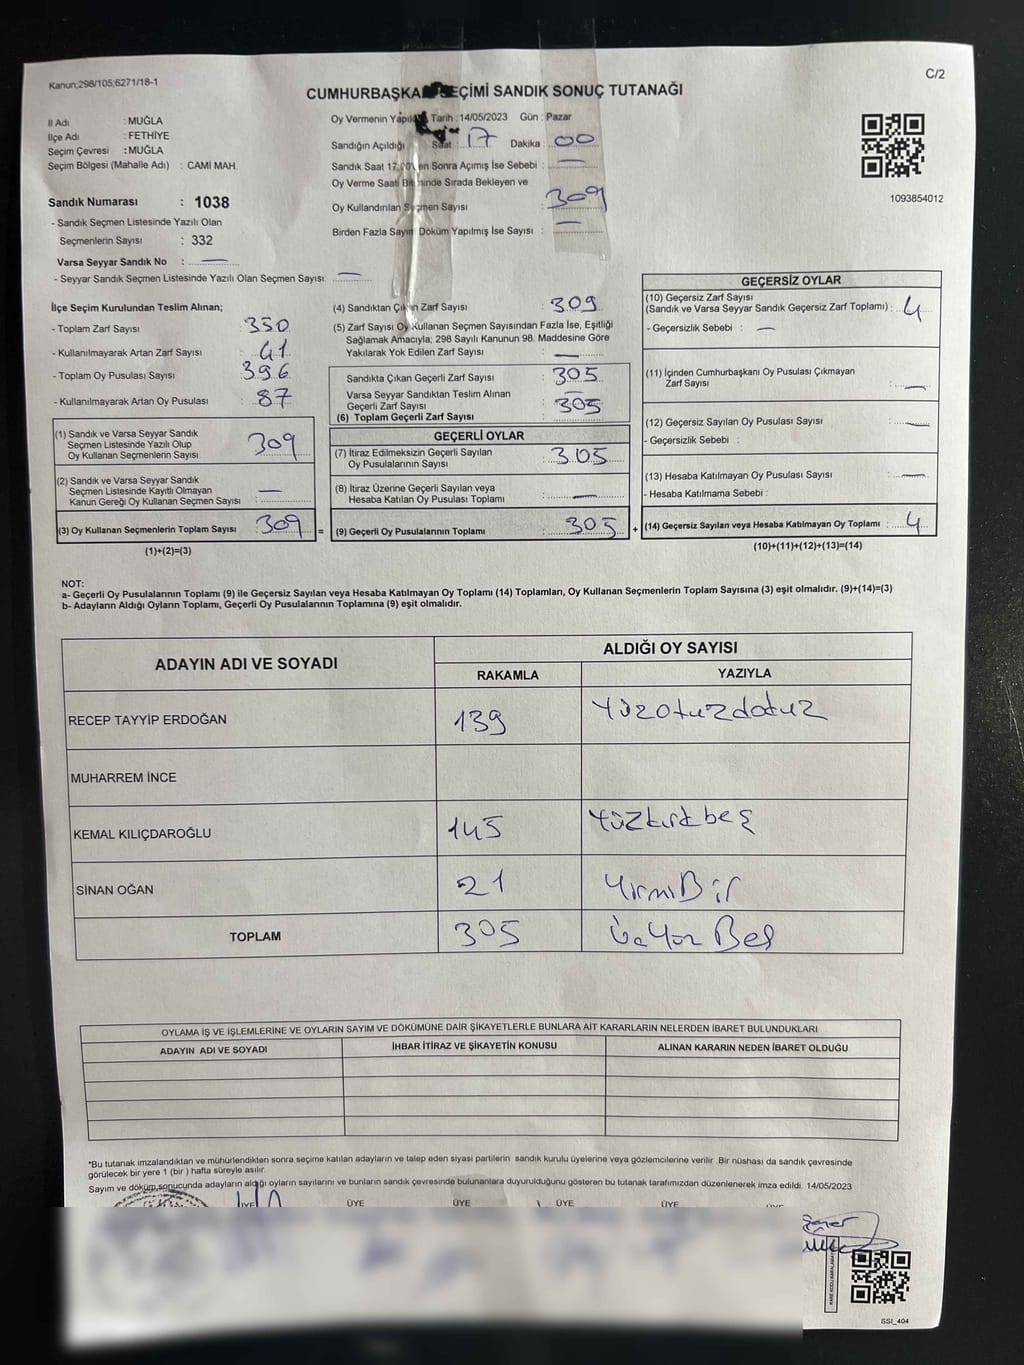 Kanun;298/105,6271/18-1
C/2
CUMHURBAŞKA EÇİMİ SANDIK SONUÇ TUTANAĞI
İl Adı : MUĞLA
İlçe Adı : FETHİYE
Seçim Çevresi : MUĞLA
Seçim Bölgesi (Mahalle Adı) : CAMİ MAH.
Sandık Numarası : 1038
- Sandık Seçmen Listesinde Yazılı Olan
Seçmenlerin Sayısı : 332
Varsa Seyyar Sandık No : —
- Seyyar Sandık Seçmen Listesinde Yazılı Olan Seçmen Sayısı: —
Oy Vermenin Yapıl Tarih : 14/05/2023 Gün : Pazar
Sandığın Açıldığı Saat : 17 Dakika : 00
Sandık Saat 17 en Sonra Açımış İse Sebebi : —
Oy Verme Saati Bit minde Sırada Bekleyen ve
Oy Kullandırılan Seçmen Sayısı : 309
Birden Fazla Sayım Döküm Yapılmış İse Sayısı : —
1093854012
İlçe Seçim Kurulundan Teslim Alınan;
- Toplam Zarf Sayısı : 350
- Kullanılmayarak Artan Zarf Sayısı : 41
- Toplam Oy Pusulası Sayısı : 396
- Kullanılmayarak Artan Oy Pusulası : 87
(1) Sandık ve Varsa Seyyar Sandık
Seçmen Listesinde Yazılı Olup
Oy Kullanan Seçmenlerin Sayısı : 309
(2) Sandık ve Varsa Seyyar Sandık
Seçmen Listesinde Kayıtlı Olmayan
Kanun Gereği Oy Kullanan Seçmen Sayısı : —
(3) Oy Kullanan Seçmenlerin Toplam Sayısı : 309 =
(1)+(2)=(3)
(4) Sandıktan Çıkan Zarf Sayısı : 309
(5) Zarf Sayısı Oy Kullanan Seçmen Sayısından Fazla İse, Eşitliği
Sağlamak Amacıyla; 298 Sayılı Kanunun 98. Maddesine Göre
Yakılarak Yok Edilen Zarf Sayısı : —
Sandıkta Çıkan Geçerli Zarf Sayısı : 305
Varsa Seyyar Sandıktan Teslim Alınan
Geçerli Zarf Sayısı : —
(6) Toplam Geçerli Zarf Sayısı : 305
GEÇERLİ OYLAR
(7) İtiraz Edilmeksizin Geçerli Sayılan
Oy Pusulalarının Sayısı : 305
(8) İtiraz Üzerine Geçerli Sayılan veya
Hesaba Katılan Oy Pusulası Toplamı : —
(9) Geçerli Oy Pusulalarının Toplamı : 305 +
GEÇERSİZ OYLAR
(10) Geçersiz Zarf Sayısı
(Sandık ve Varsa Seyyar Sandık Geçersiz Zarf Toplamı) : 4
- Geçersizlik Sebebi : —
(11) İçinden Cumhurbaşkanı Oy Pusulası Çıkmayan
Zarf Sayısı : —
(12) Geçersiz Sayılan Oy Pusulası Sayısı : —
- Geçersizlik Sebebi :
(13) Hesaba Katılmayan Oy Pusulası Sayısı : —
- Hesaba Katılmama Sebebi :
(14) Geçersiz Sayılan veya Hesaba Katılmayan Oy Toplamı : 4
(10)+(11)+(12)+(13)=(14)
NOT:
a- Geçerli Oy Pusulalarının Toplamı (9) ile Geçersiz Sayılan veya Hesaba Katılmayan Oy Toplamı (14) Toplamları, Oy Kullanan Seçmenlerin Toplam Sayısına (3) eşit olmalıdır. (9)+(14)=(3)
b- Adayların Aldığı Oyların Toplamı, Geçerli Oy Pusulalarının Toplamına (9) eşit olmalıdır.
ADAYIN ADI VE SOYADI ALDIĞI OY SAYISI
RAKAMLA YAZIYLA
RECEP TAYYİP ERDOĞAN 139 Yüzotuzdotuz
MUHARREM İNCE
KEMAL KILIÇDAROĞLU 145 Yüzkırkbeş
SİNAN OĞAN 21 YirmiBir
TOPLAM 305 ÜçYüz Beş
OYLAMA İŞ VE İŞLEMLERİNE VE OYLARIN SAYIM VE DÖKÜMÜNE DAİR ŞİKAYETLERLE BUNLARA AİT KARARLARIN NELERDEN İBARET BULUNDUKLARI
ADAYIN ADI VE SOYADI İHBAR İTİRAZ VE ŞİKAYETİN KONUSU ALINAN KARARIN NEDEN İBARET OLDUĞU
*Bu tutanak imzalandıktan ve mühürlendikten sonra seçime katılan adayların ve talep eden siyasi partilerin sandık kurulu üyelerine veya gözlemcilerine verilir .Bir nüshası da sandık çevresinde
görülecek bir yere 1 (bir ) hafta süreyle asılır.
Sayım ve döküm sonucunda adayların aldığı oyların sayılarını ve bunların sandık çevresinde bulunanlara duyurulduğunu gösteren bu tutanak tarafımızdan düzenlenerek imza edildi. 14/05/2023
ÜYE ÜYE ÜYE ÜYE
SSI_404